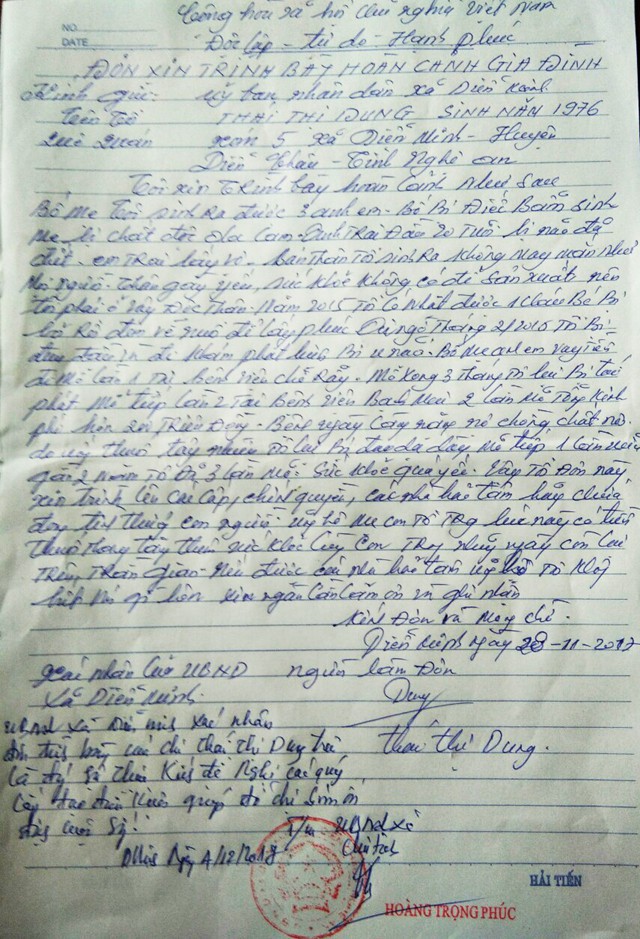 NO.
DATE
Cộng hòa xã hội chủ nghĩa Việt Nam
Độc lập - tự do - Hạnh phúc
ĐƠN XIN TRÌNH BÀY HOÀN CẢNH GIA ĐÌNH
Kính gửi: Uỷ ban nhân dân xã Diễn Minh
Tên Tôi THÁI THỊ DUNG SINH NĂM 1976
Quê Quán xóm 5 xã Diễn Minh - Huyện
Diễn Châu - Tỉnh Nghệ an
Tôi xin Trình bày hoàn cảnh như sau
Bố Mẹ Tôi sinh Ra được 3 anh em - Bố Bị Điếc Bẩm sinh
Mẹ bị chất độc da Cam - Anh Trai Đầu 20 Tuổi bị não đã
chết - em Trai bây . bản Thân Tô sinh Ra không may mắn như
Mọi người - Thân gầy yếu, sức khỏe không có để sản xuất nên
tô phải ở vậy Độc Thân - Năm 2015 Tô Có Nhặt được 1 cháu Bé Bị
bỏ Rơi đem về nuôi để lấy phúc tháng 2/2015 Tô Bị
đau đầu đi khám phát hiện Bị u não - Bố Mẹ anh em vay tiền
đi Mổ lần 1 Tại Bệnh viện chợ Rẫy - Mổ xong 3 tháng Tô lại Bị tái
phát Mổ tiếp lần 2 Tại Bệnh viện Bạch Mai 2 lần Mổ Tổng Kinh
phí hơn Triệu Đồng - Bệnh ngày càng nặng nợ chồng chất nợ
do thuốc tây nhiều Tô lại Bị đau dạ dày Mổ tiếp 1 lần nữa
gần 2 năm Tô Đã 3 lần Mổ Sức khỏe quá yếu. Vậy Tô Đơn này
xin trình lên các Cấp, chính quyền, các nhà hảo tâm hãy
tình thương con người - ủng hộ Mẹ con Tô Trg lúc này có tiền
thuốc thang sức khỏe Con Trg những ngày còn lại
Trên Trần Gian - Nếu được các nhà hảo tâm ủng hộ Tô Không
biết nói gì hơn xin ngàn lần cảm ơn và ghi nhận
Kính Đơn và Mong chờ.
Diễn Minh Ngày 28-11-2017
xác nhận Của UBND người làm Đơn
Xã Diễn Minh. Duy
UBND xã Diễn Minh xác nhận
trình bày của chị Thái Thị Dung trên Thái thị Dung.
là đúng sự thật Kính đề Nghị các quý
giúp đỡ chị
cuộc Sống!
T/m UBND xã
D Minh Ngày 4/12/2017 Chủ tịch
HẢI TIẾN
HOÀNG TRỌNG PHÚC